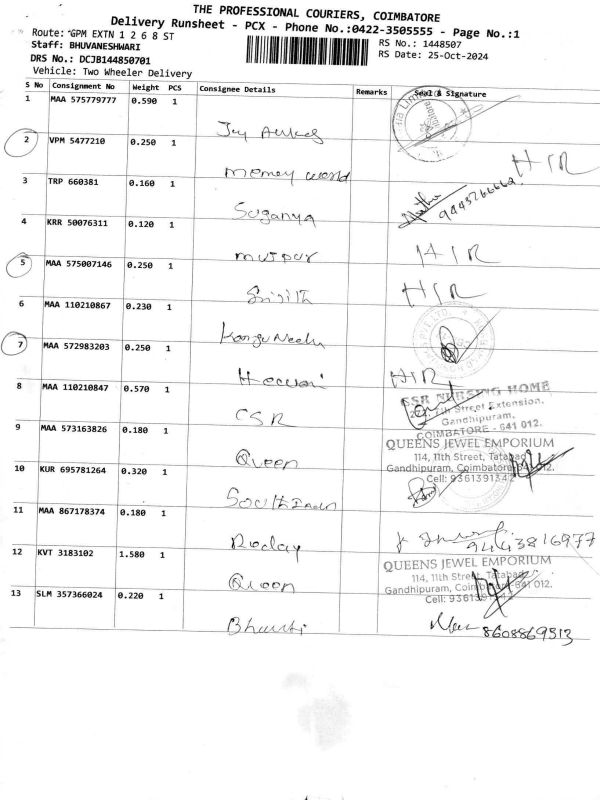 THE PROFESSIONAL COURIERS, COIMBATORE
Delivery Runsheet - PCX - Phone No.:0422-3505555 - Page No.:1
Route: GPM EXTN 1 2 6 8 ST
Staff: BHUVANESHWARI
DRS No.: DCJB144850701
Vehicle: Two Wheeler Delivery
RS No.: 1448507
RS Date: 25-Oct-2024
S No Consignment No Weight PCS Consignee Details Remarks Seal & Signature
1 MAA 575779777 0.590 1
2 VPM 5477210 0.250 1
memory world HIR
3 TRP 660381 0.160 1
Suganya 9443266662
4 KRR 50076311 0.120 1
HIR
5 MAA 575007146 0.250 1
HIR
6 MAA 110210867 0.230 1
7 MAA 572983203 0.250 1
HIR
8 MAA 110210847 0.570 1
CSR
GSR NURSING HOME
Street Extension,
Gandhipuram,
COIMBATORE - 641 012.
9 MAA 573163826 0.180 1
Queen
QUEENS JEWEL EMPORIUM
114, 11th Street, Tatabad
Gandhipuram, Coimbatore 641 012.
Cell: 9361391342
10 KUR 695781264 0.320 1
South India
11 MAA 867178374 0.180 1
9443816977
12 KVT 3183102 1.580 1
Queen
QUEENS JEWEL EMPORIUM
114, 11th Street, Tatabad
Gandhipuram, 641 012.
Cell:
13 SLM 357366024 0.220 1
8608869513